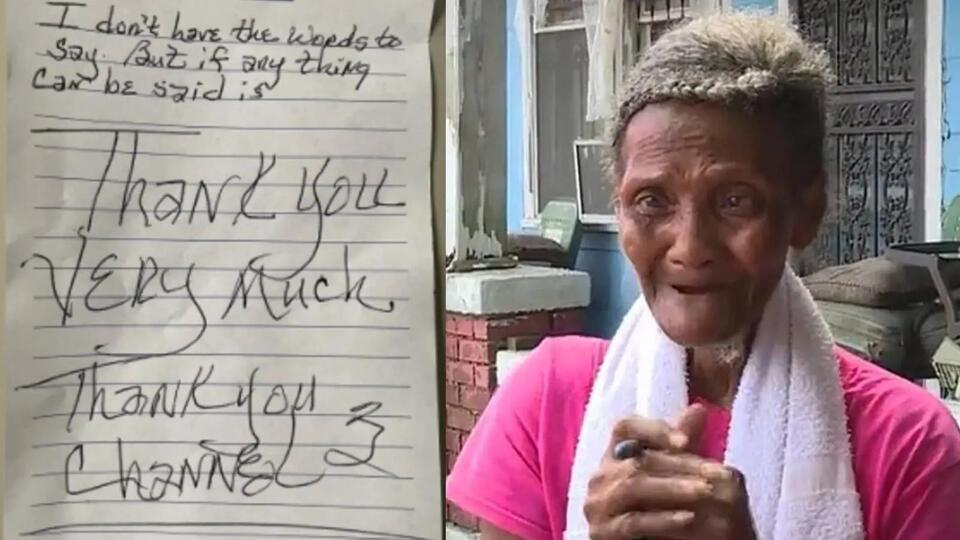 I don't have the words to
say. But if any thing
can be said is
Thank you
Very Much.
Thank you
Channel 3